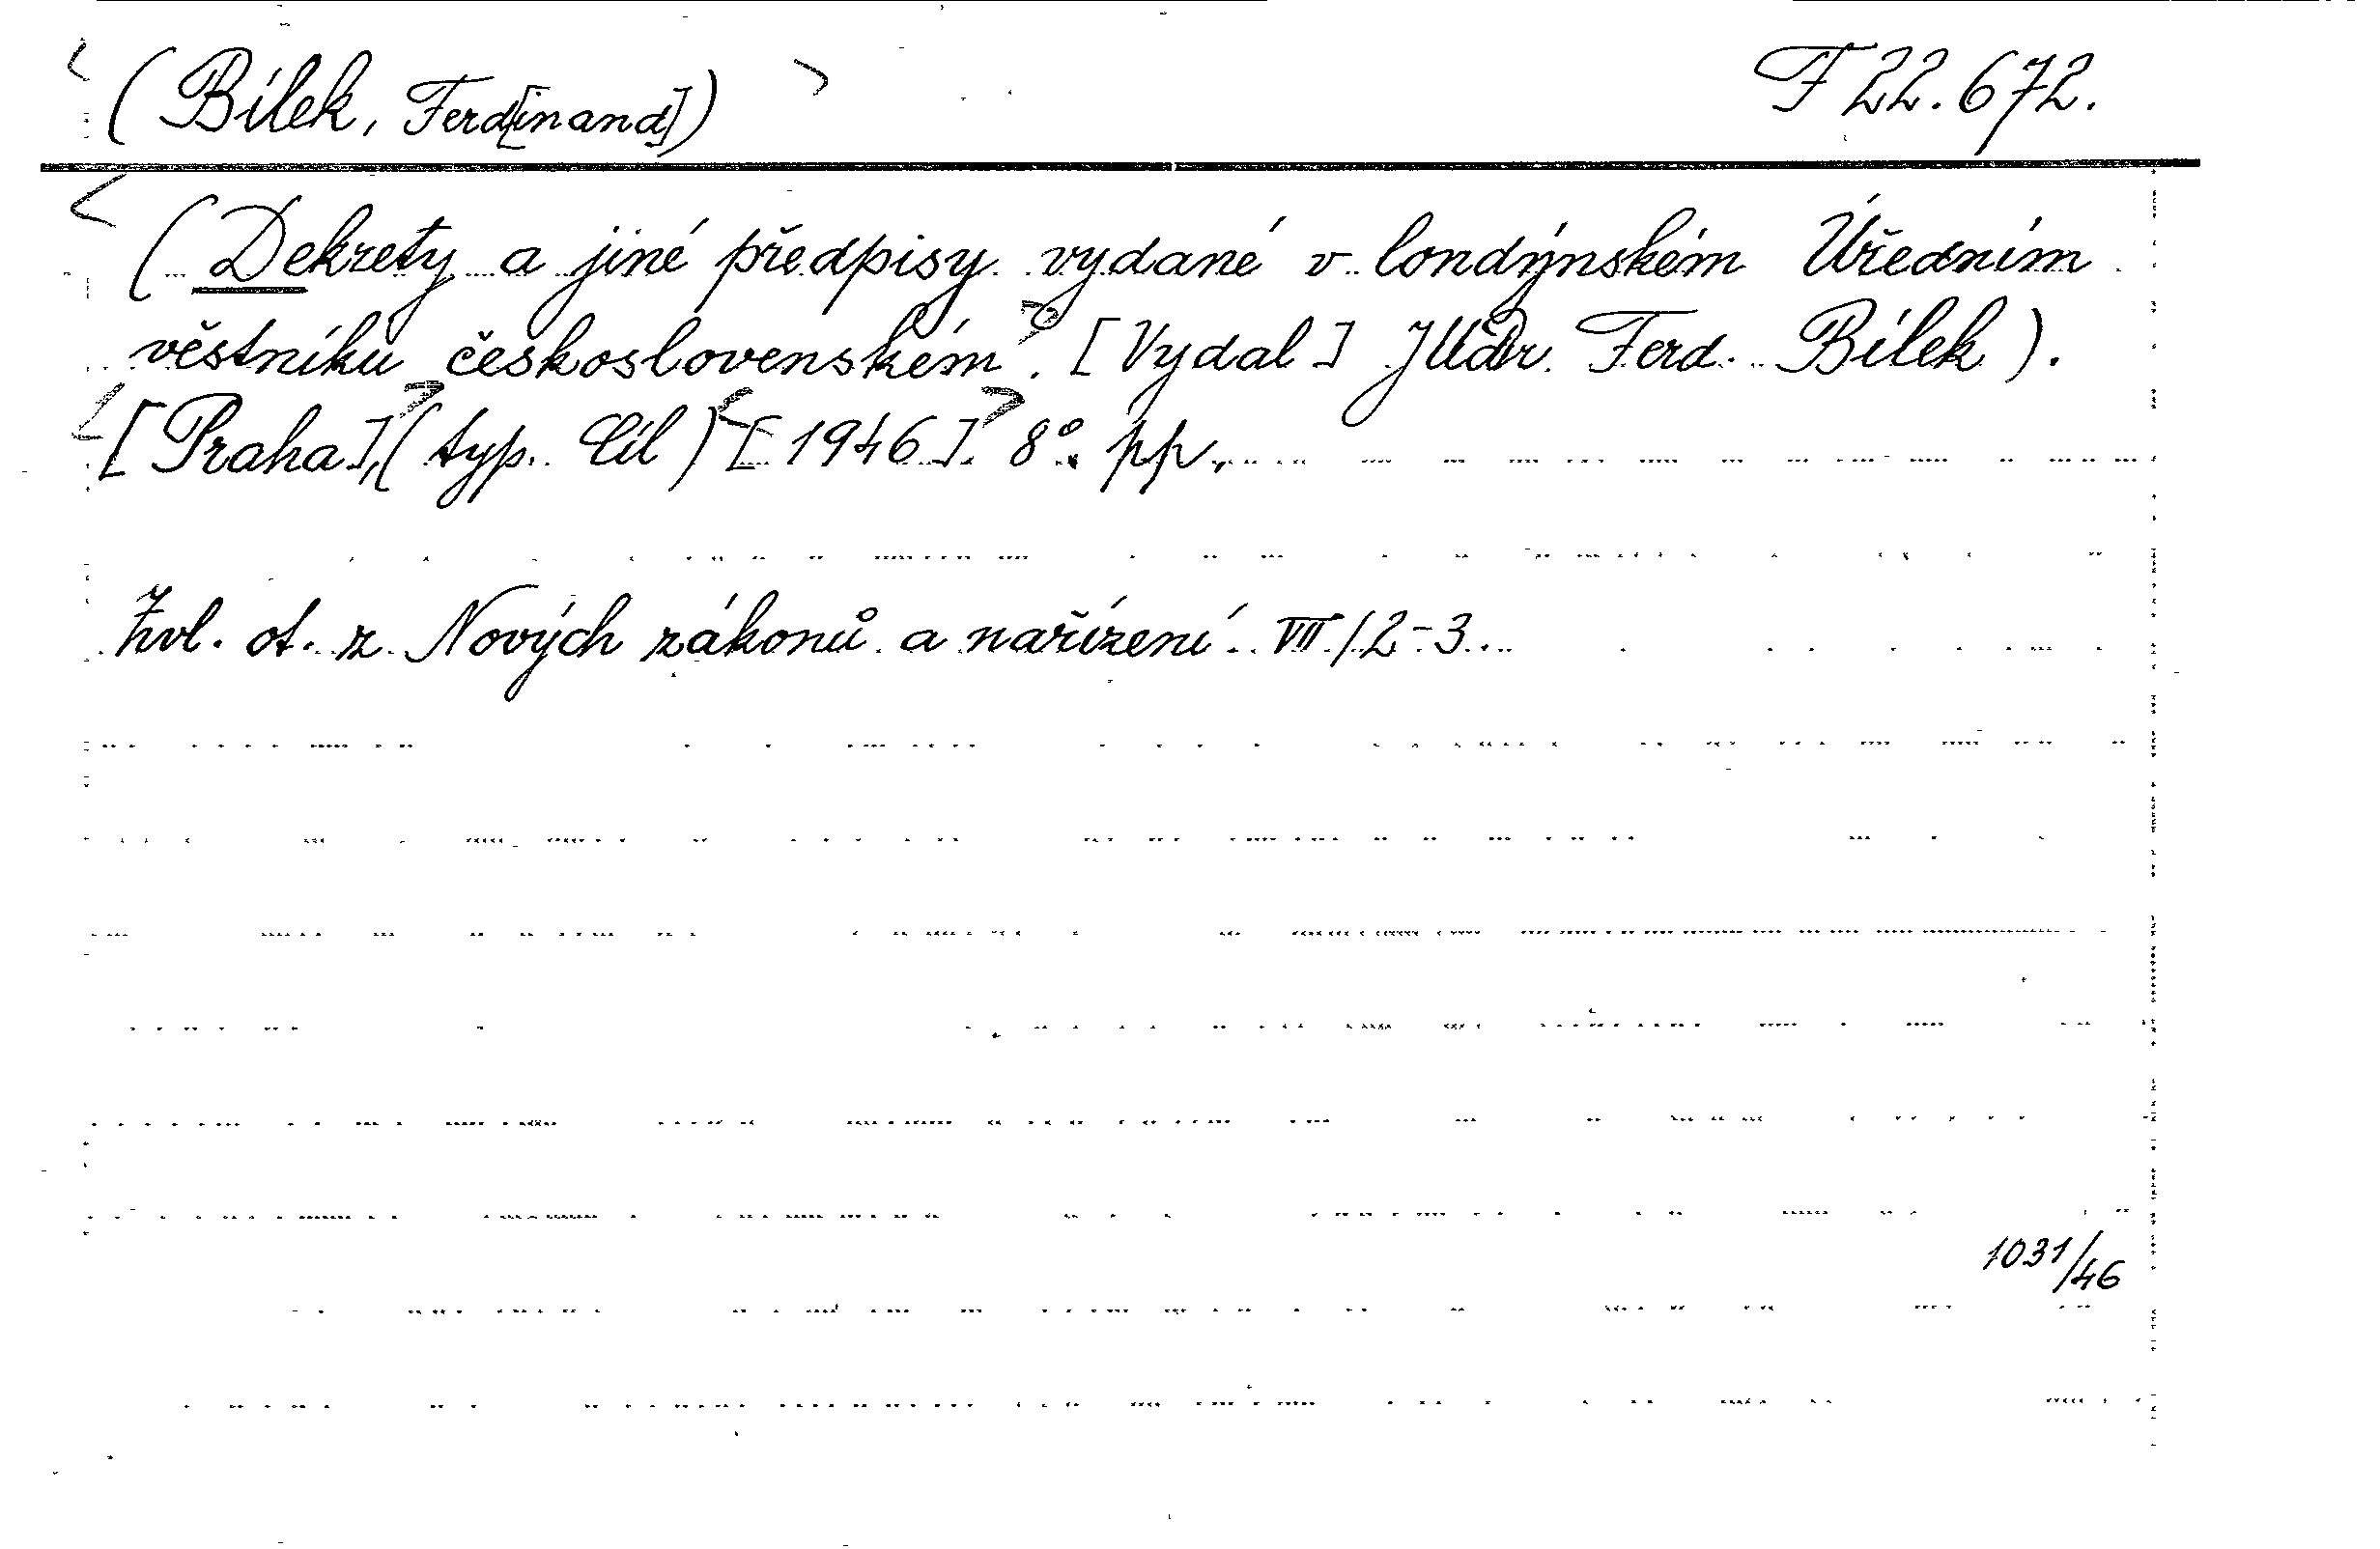 < (Bílek, Ferd[inand]) > F 22.672.
< (Dekrety a jiné předpisy vydané v londýnském Úředním
věstníku československém>. [Vydal] JUDr. Ferd. Bílek).
<[Praha],> (typ. Cíl) <[1946].> 8°. pp.
Zvl. ot. z Nových zákonů a nařízení VII/2-3.
1031/46